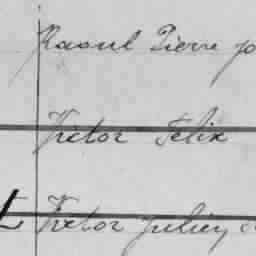 Raoul Pierre
Victor Felix
Victor Julien